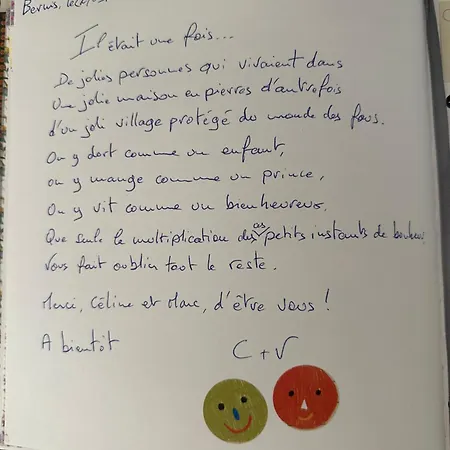 Il était une fois...
De jolies personnes qui vivaient dans
Une jolie maison en pierres d'autrefois
d'un joli village protégé du monde des fous.
On y dort comme un enfant,
on y mange comme un prince,
On y vit comme un bienheureux.
Que seule la multiplication des petits instants de bonheur
Vous fait oublier tout le reste.
Merci, Céline et Marc, d'être vous !
A bientôt
C + V